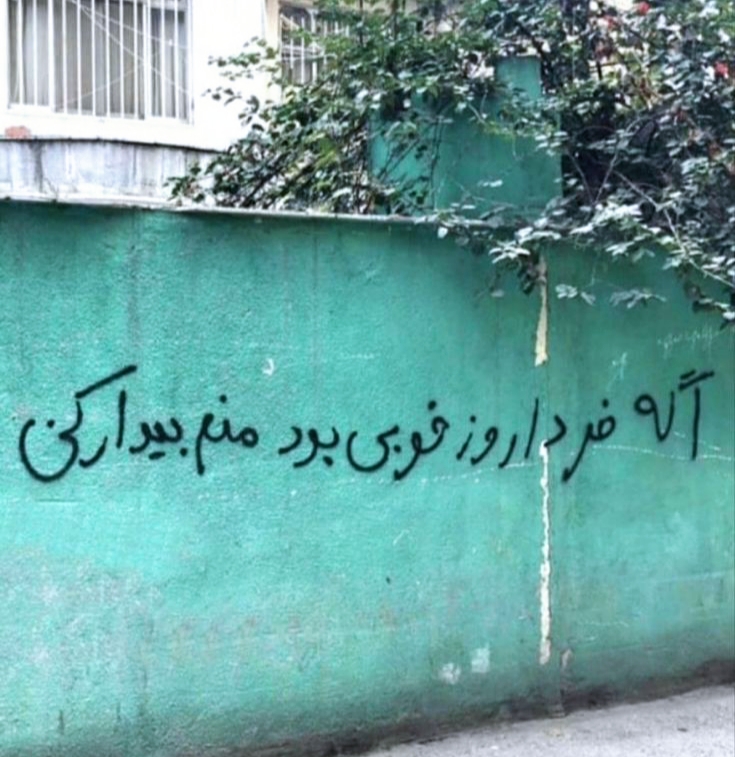 اگه فردا روز خوبی بود منم بیدار کن